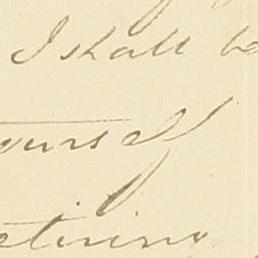 I shall be
yourself
etiring